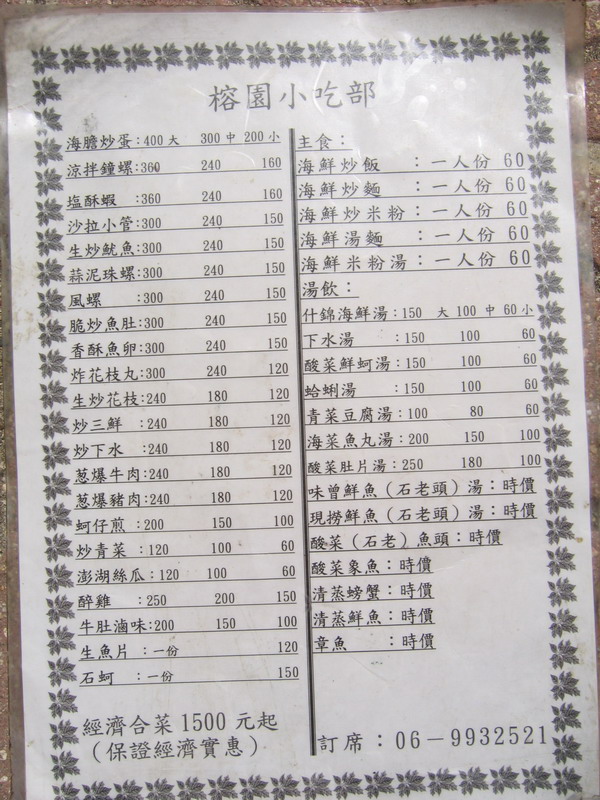 榕園小吃部
海膽炒蛋：400 大 300 中 200 小
涼拌鐘螺：360 240 160
塩酥蝦 ：360 240 160
沙拉小管：300 240 150
生炒魷魚：300 240 150
蒜泥珠螺：300 240 150
風螺 ：300 240 150
脆炒魚肚：300 240 150
香酥魚卵：300 240 150
炸花枝丸：300 240 120
生炒花枝：240 180 120
炒三鮮 ：240 180 120
炒下水 ：240 180 120
葱爆牛肉：240 180 120
葱爆豬肉：240 180 120
蚵仔煎 ：200 150 100
炒青菜 ：120 100 60
澎湖絲瓜：120 100 60
醉雞 ：250 200 150
牛肚滷味：200 150 100
生魚片 ：一份 120
石蚵 ：一份 150
經濟合菜 1500 元起
（保證經濟實惠）
主食：
海鮮炒飯 ：一人份 60
海鮮炒麵 ：一人份 60
海鮮炒米粉：一人份 60
海鮮湯麵 ：一人份 60
海鮮米粉湯：一人份 60
湯飲：
什錦海鮮湯：150 大 100 中 60 小
下水湯 ：150 100 60
酸菜鮮蚵湯：150 100 60
蛤蜊湯 ：150 100 60
青菜豆腐湯：100 80 60
海菜魚丸湯：200 150 100
酸菜肚片湯：250 180 100
味曾鮮魚（石老頭）湯：時價
現撈鮮魚（石老頭）湯：時價
酸菜（石老）魚頭：時價
酸菜象魚：時價
清蒸螃蟹：時價
清蒸鮮魚：時價
章魚 ：時價
訂席：06－9932521